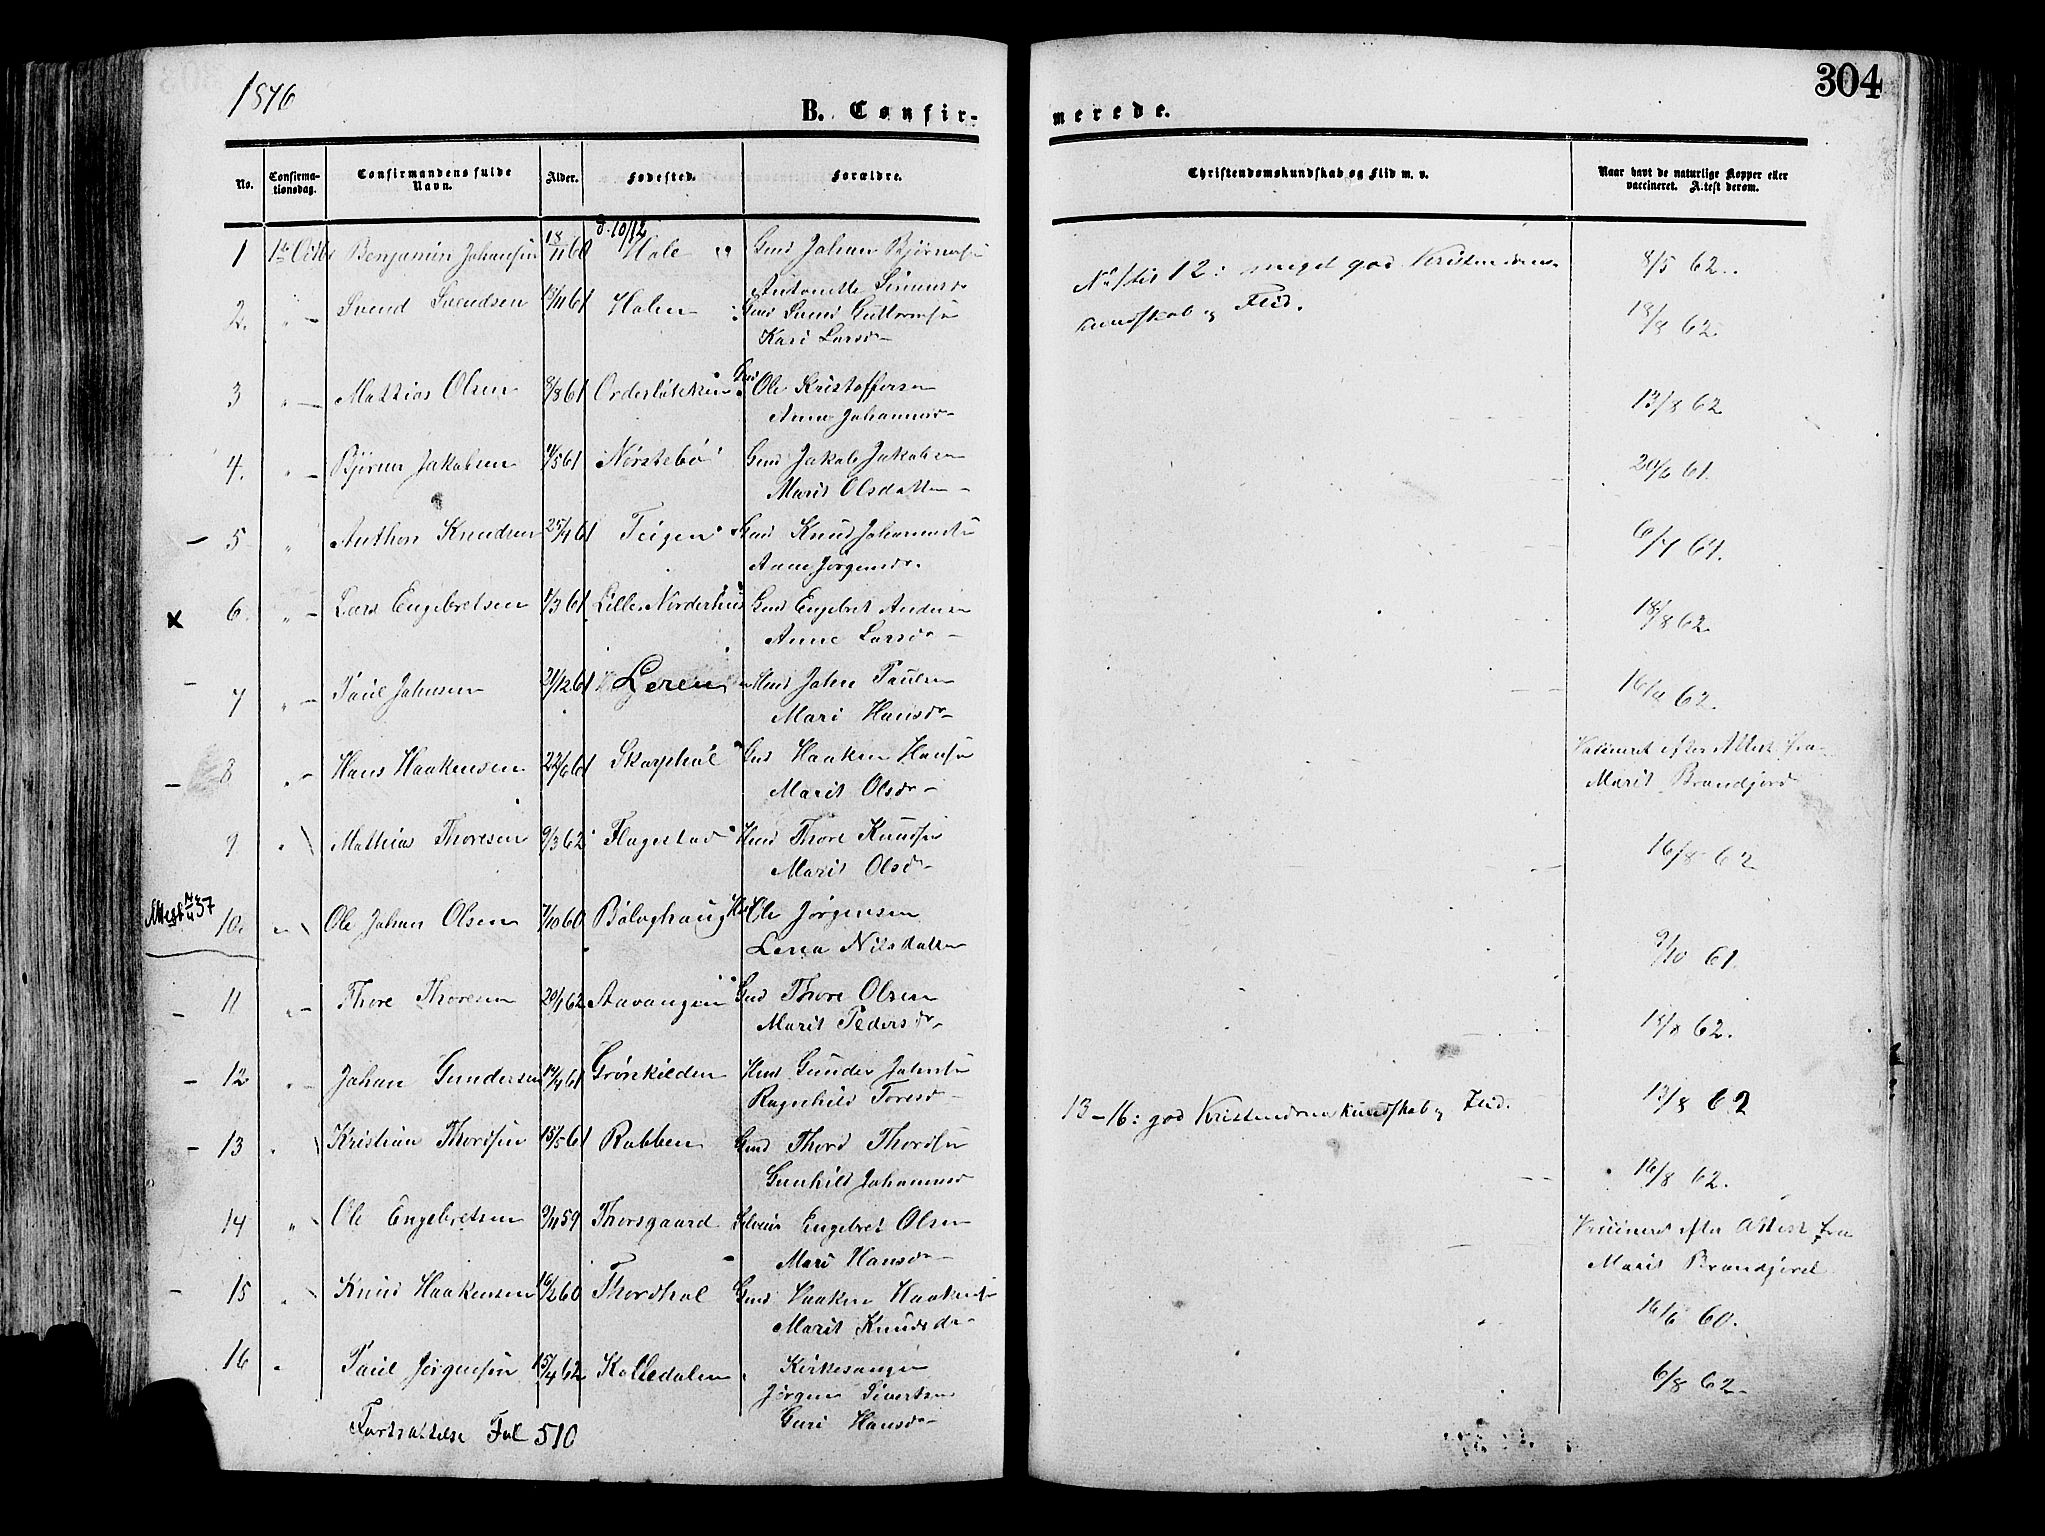 1876
304
B. Confir-
merede.
No.
Confirma-
tionsdag.
Confirmandens fulde
Navn.
Alder.
Fødested.
Forældre.
Christendomskundskab og Flid m. v.
Naar havt de naturlige Kopper eller
vaccineret. Attest derom.
1 Benjamin Johansen Hole Gmd Johan Bjørnsen 8/5 62.
d. 10/12
Antonette Simensd
No 1 til 12: meget god Kristendoms-
kundskab og Flid.
2. Svend Svendsen 13/11 61 Holen Gmd Svend Guttormsen 18/8 62.
Kari Larsd
3 Mattias Olsen 8/8 61 Ole Kristoffersen 13/8 62
Anne Johannesd
4. Bjørn Jakobsen 4/5 61 Nørstebø Gmd Jakob Jakobsen 20/6 61.
Marit Olsdatter
5 Anthon Knudsen 25/4 61 Teigen Gmd Knud Johannesen 6/7 64.
Anne Jørgensd.
6. Lars Engebretsen 1/3 61 Lille Nørderhus Gmd Engebret Andersen 18/8 62
Anne Larsd
7 Paul Johnsen 21/12 61 Leren Hmd John Paulsen 62.
Mari Hansd
8 Hans Haakensen 22/6 61 Skarphol Gmd Haaken Hansen Vaccineret efter Attest fra
Marit Olsd Marit Brandjord
9 Mathias Thoresen 9/3 62 Flagestad Hmd Thore Knudsen 16/8 62
Marit Olsd
Attest 37
10. Ole Johan Olsen 7/10 60 Bølaghaug Ole Jørgensen 9/10 61.
Lena Nilsdatter
11 Thore Thoresen 20/1 62 Aavangen Gmd Thore Olsen 18/8 62.
Marit Pedersd
12 Johan Gundersen 14/4 61 Grønkilden Hmd Gunder Johnsen 13/8 62
Ragnhild Toresd
13-16: god Kristendomskundskab og Flid.
13 Kristian Thordsen 15/5 61 Rabben Gmd Thord Thordsen 16/8 62.
Gunhild Johannesd
14 Ole Engebretsen 9/11 59 Thorsgaard Selveier Engebret Olsen Vaccineret efter Attest fra
Mari Hansd Marit Brandjord
15 Knud Haakensen 16/2 60 Thordhol Gmd Haaken Haakensen 16/6 60.
Marit Knudsd
16 Paul Jørgensen 15/4 62 Kolledalen Kirkesanger 6/8 62
Jørgen Sivertsen
Guri Hansd
Fortsættelse Fol 510